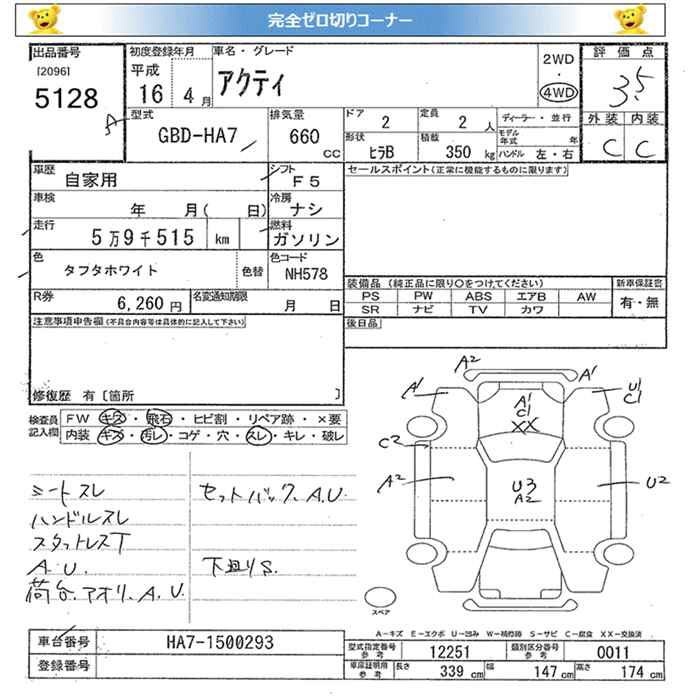 完全ゼロ切りコーナー
出品番号
[2096]
5128
A
初度登録年月
平成
16 4月
車名・グレード
アクティ
2WD
4WD
評価点
3.5
外装 内装
C C
型式
GBD-HA7
排気量
660
CC
ドア
2
定員
2 人
形状
ヒラB
積載
350 kg
ディーラー・並行
モデル年式 年
ハンドル 左・右
車歴
自家用
シフト
F5
車検
年 月( 日)
冷房
ナシ
走行
5万9千515 km
燃料
ガソリン
色
タフタホワイト
色替
色コード
NH578
R券
6,260円
名変通知期限
月 日
セールスポイント(正常に機能するものに限ります)
装備品 (純正品に限り○をつけてください)
PS PW ABS エアB AW
SR ナビ TV カワ
新車保証書
有・無
後日品
注意事項申告欄(不具合内容等は具体的に記入して下さい)
修復歴 有〔箇所 〕
検査員記入欄
FW キズ・飛石・ヒビ割・リペア跡・×要
内装 キズ・汚レ・コゲ・穴・スレ・キレ・破レ
シートスレ
ハンドルスレ
スタットレスT
A.U.
荷台.アオリ.A.U
セットバック.A.U.
下廻りS.
A2
A1
A1
U1
C1
A1
C1
XX
C2
A2
U3
A2
U2
スペア
A-キズ E-エクボ U-凹み W-補修跡 S-サビ C-腐食 XX-交換済
車台番号
HA7-1500293
登録番号
型式指定番号参考
12251
類別区分番号参考
0011
車庫証明用参考
長さ 339 cm
幅 147 cm
高さ 174 cm